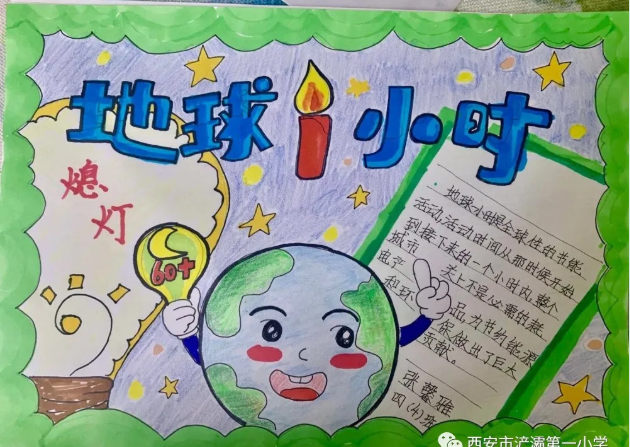 地球1小时
熄
灯
60+
地球小时是全球性的节能
活动,活动时间从那时候开始
到接下来的一个小时内,整个
城市 关上不是必需的耗
电产 品,为节约能源
和环 保做出了巨大
贡献。
张馨雅
四(4)班
西安市浐灞第一小学